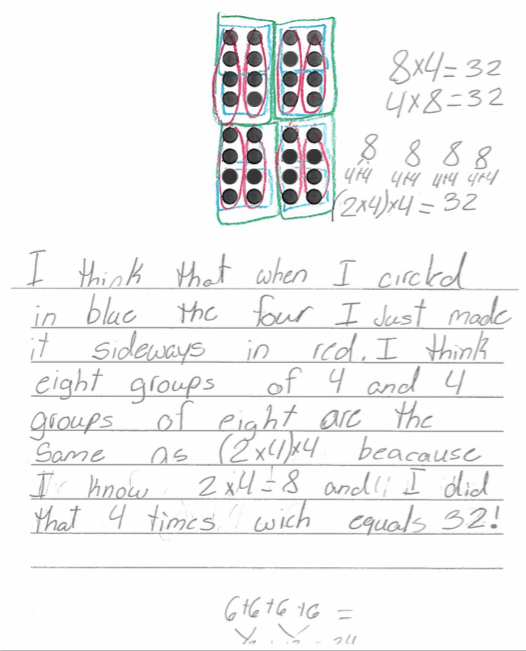 8×4=32
4×8=32
8 8 8 8
4+4 4+4 4+4 4+4
(2×4)×4=32
I think that when I circled
in blue the four I Just made
it sideways in red. I think
eight groups of 4 and 4
groups of eight are the
Same as (2×4)×4 beacause
I know 2×4=8 and I did
that 4 times wich equals 32!
6+6+6+6=